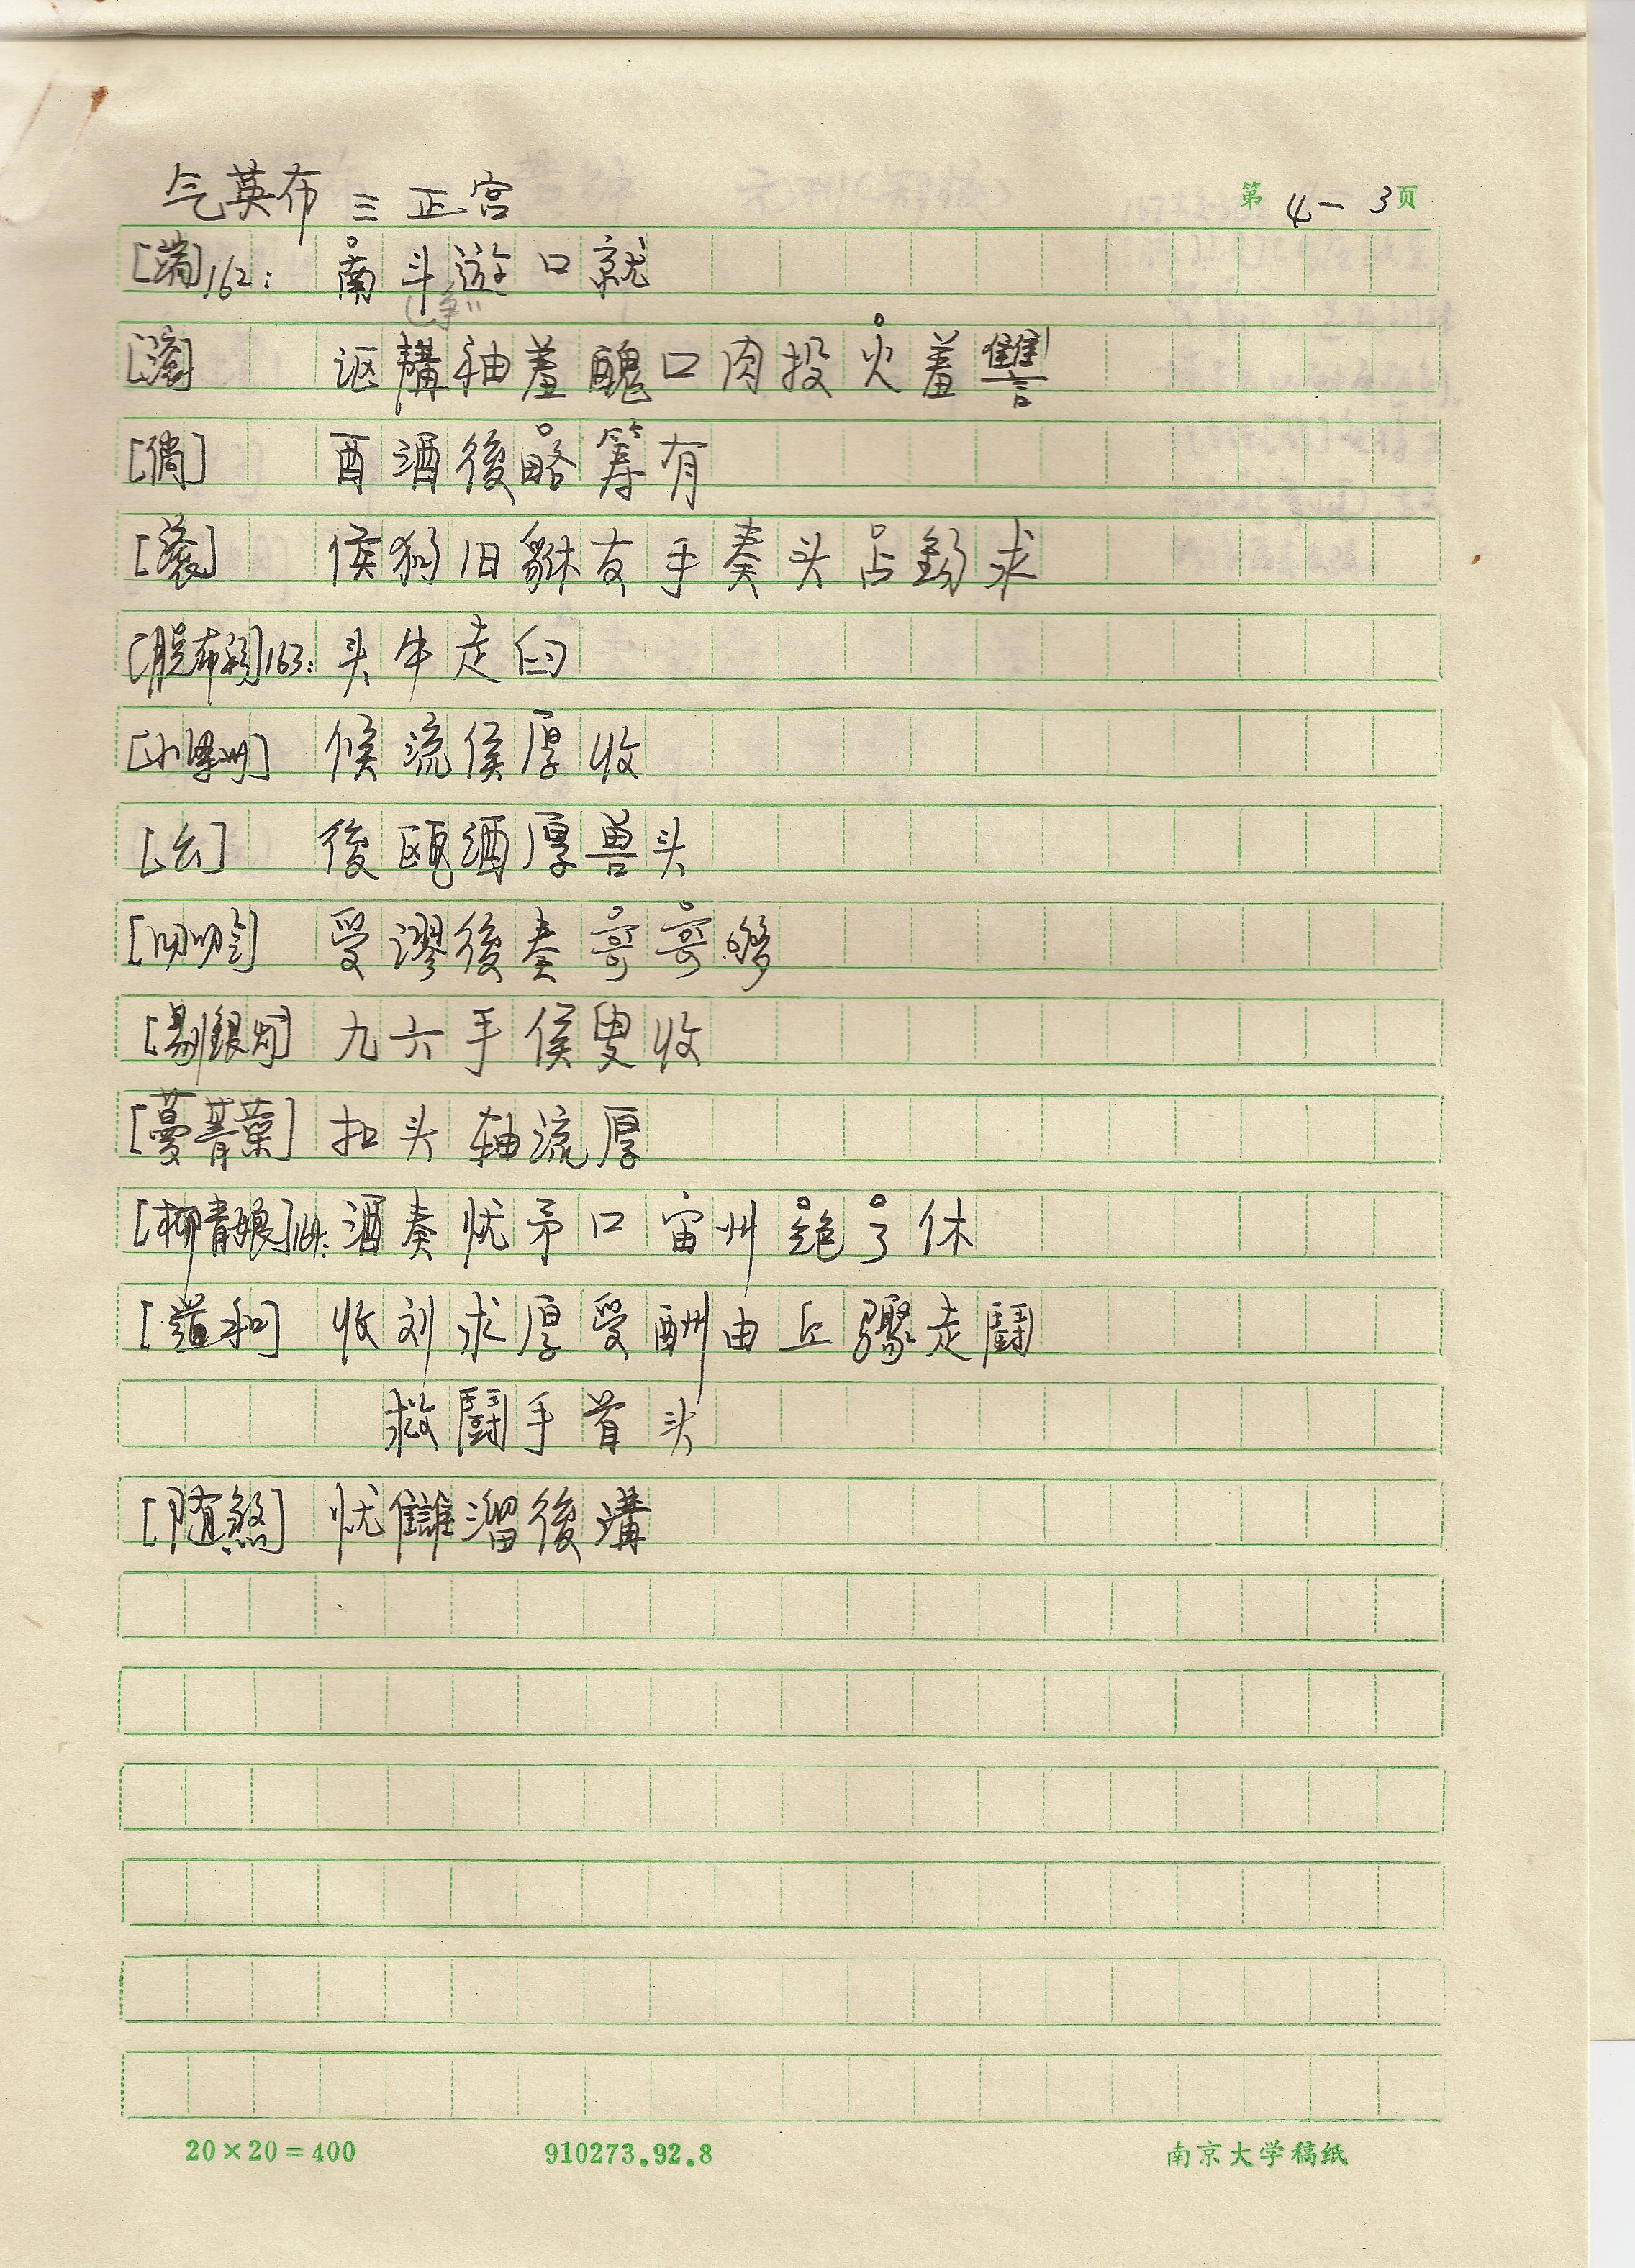 气英布 三 正宫 第 4-3 页
[端]162: 南斗遊口就
(争)
[滚] 讴搆袖羞醜口肉投火羞讐
[倘] 酉酒後略筹有
[滚] 侯狗旧貅友手奏头占芻求
[脱布衫]163: 头牛走臼
[小梁州] 候流侯厚收
[么] 後瓯酒厚兽头
[叨叨令] 受謬後奏哥哥够
[剔銀灯] 九六手侯叟收
[蔓菁葉] 扣头轴流厚
[柳青娘]164: 酒奏忧矛口宙州絶了休
[道和] 收刘求厚受酬由丘骤走鬪
救鬪手首头
[随煞] 忧讎溜後溝
20×20=400 910273.92.8 南京大学稿纸